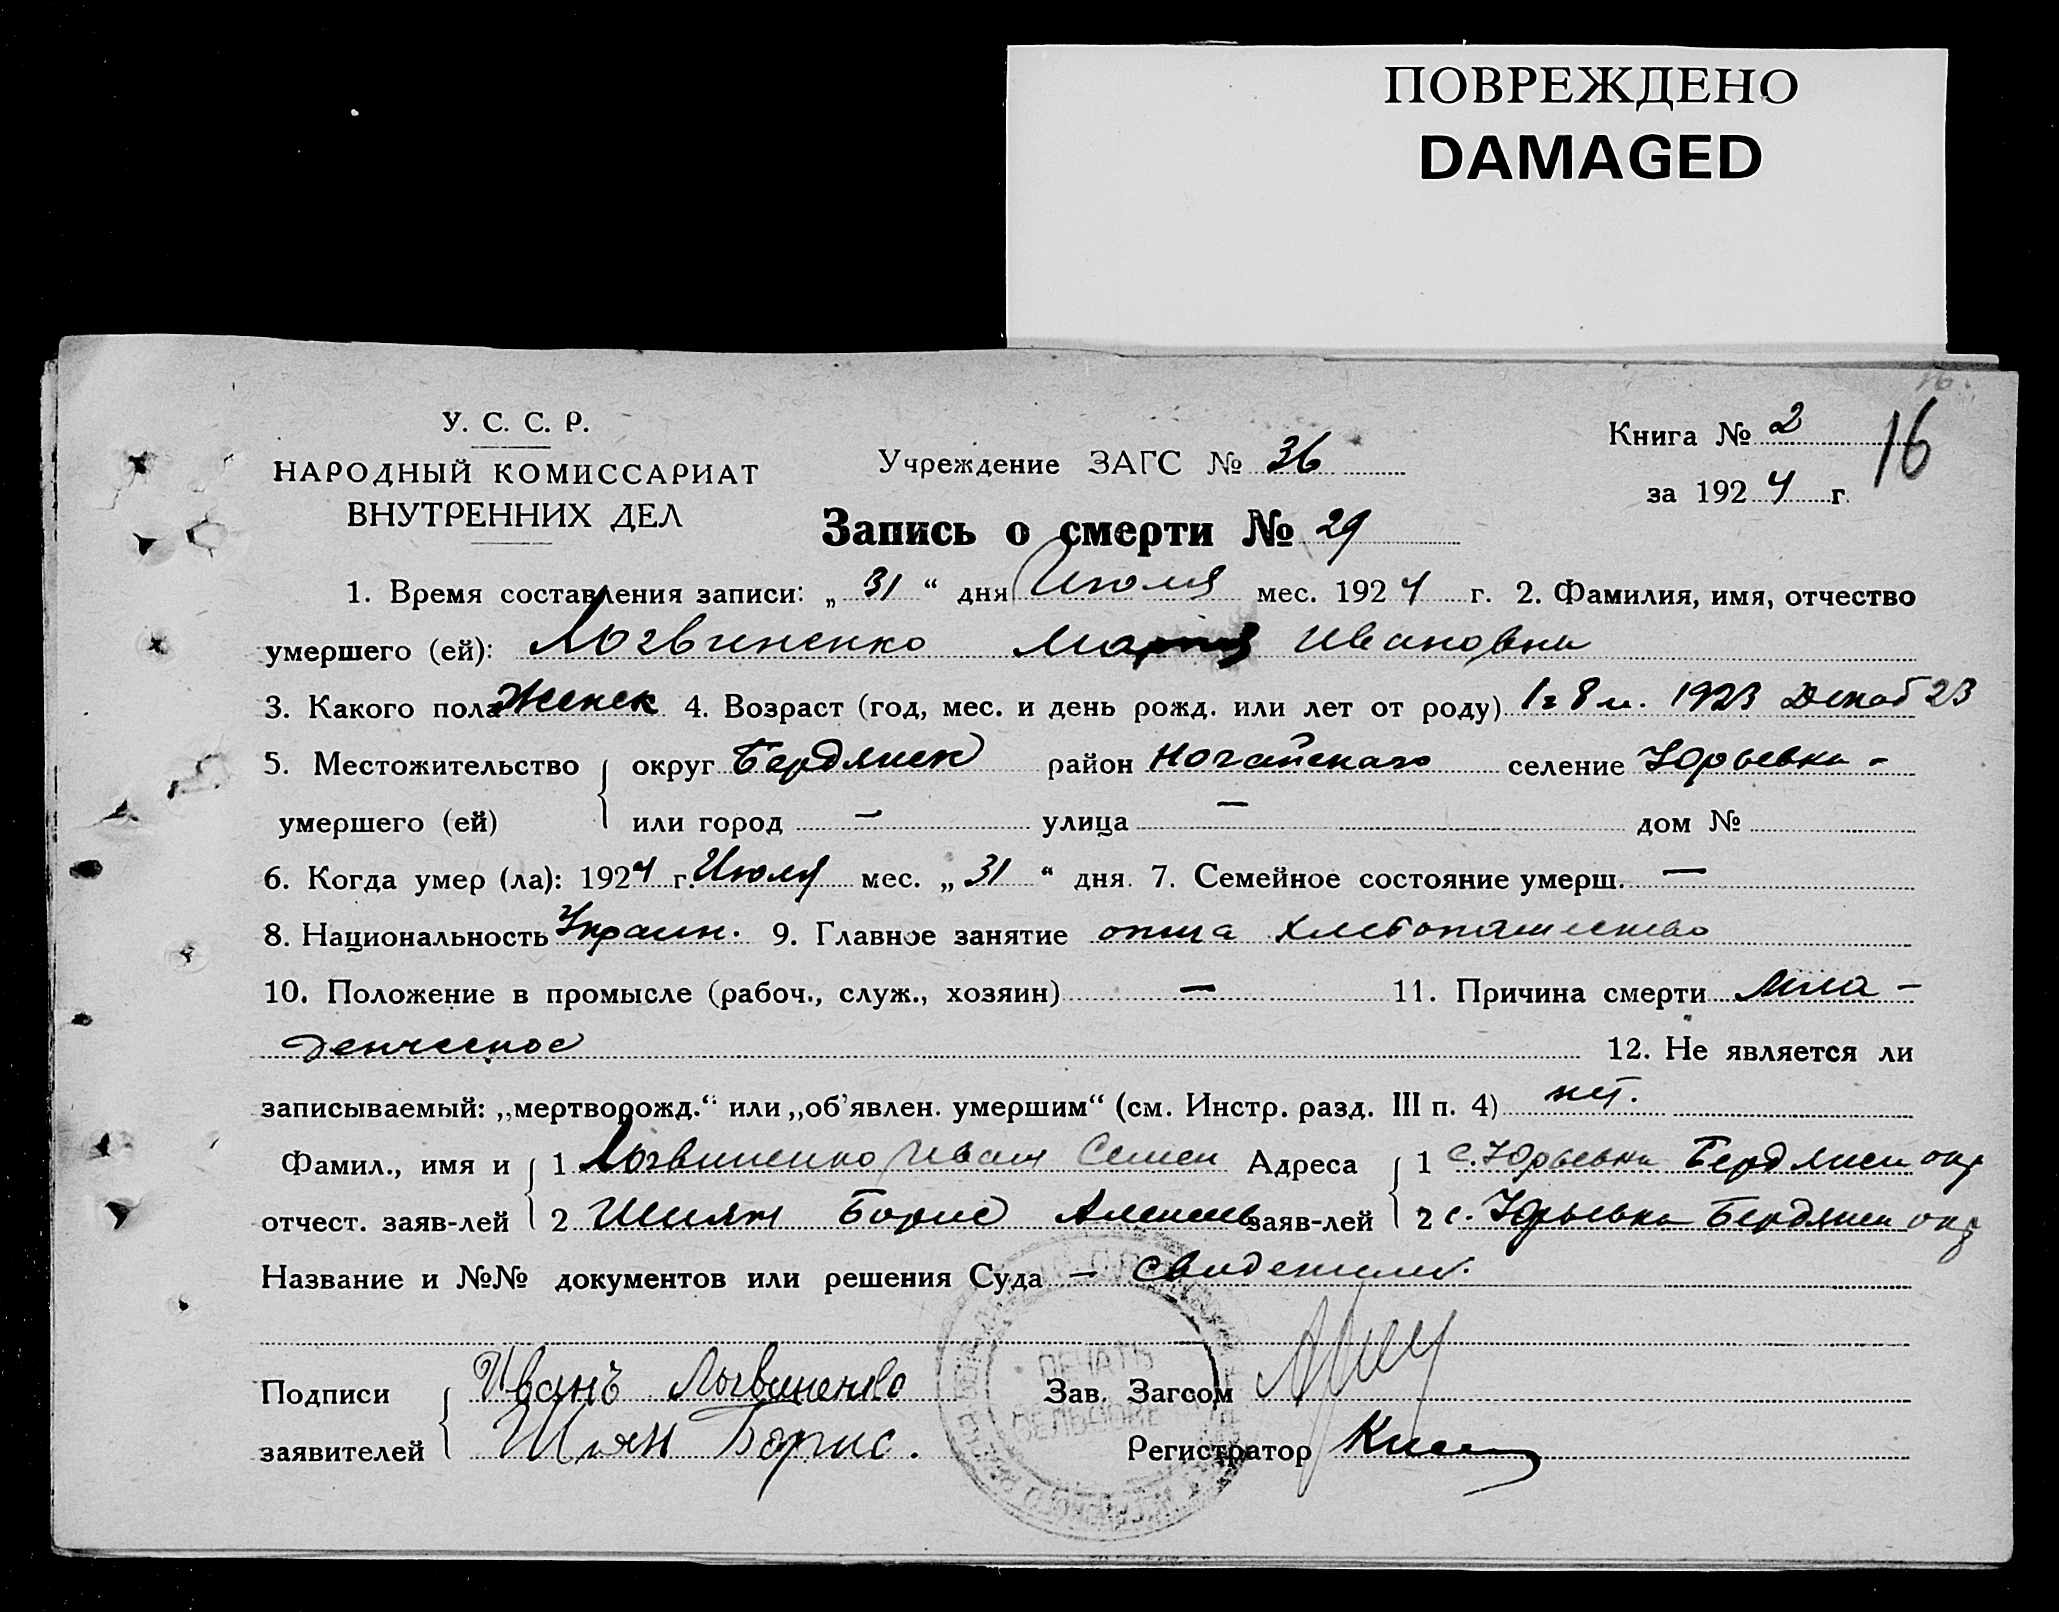 ПОВРЕЖДЕНО
DAMAGED
16.
У. С. С. Р.
НАРОДНЫЙ КОМИССАРИАТ
ВНУТРЕННИХ ДЕЛ
Учреждение ЗАГС № 36
Книга № 2
16
за 1924 г.
Запись о смерти № 29
1. Время составления записи: „31“ дня Июля мес. 1924 г. 2. Фамилия, имя, отчество
умершего (ей): Логвиненко Мария Ивановна
3. Какого пола Женск 4. Возраст (год, мес. и день рожд. или лет от роду) 1 г 8 м. 1923 Декаб 23
5. Местожительство округ Бердянск район Ногайского селение Юрьевка -
умершего (ей) или город — улица — дом №
6. Когда умер (ла): 1924 г. Июля мес. „31“ дня. 7. Семейное состояние умерш. —
8. Национальность Украин. 9. Главное занятие отца хлебопашество
10. Положение в промысле (рабоч., служ., хозяин) — 11. Причина смерти Мла-
денческое 12. Не является ли
записываемый: „мертворожд.“ или „об'явлен. умершим“ (см. Инстр. разд. III п. 4) нет.
Фамил., имя и 1 Логвиненко Иван Семен Адреса 1 с. Юрьевка Бердянск окр
отчест. заяв-лей 2 Шиян Борис Алексеев заяв-лей 2 с. Юрьевка Бердянск окр
Название и №№ документов или решения Суда — свидетели.
ПЕЧАТЬ
Подписи Иванъ Логвиненко Зав. Загсом
заявителей Шиян Борис. Регистратор